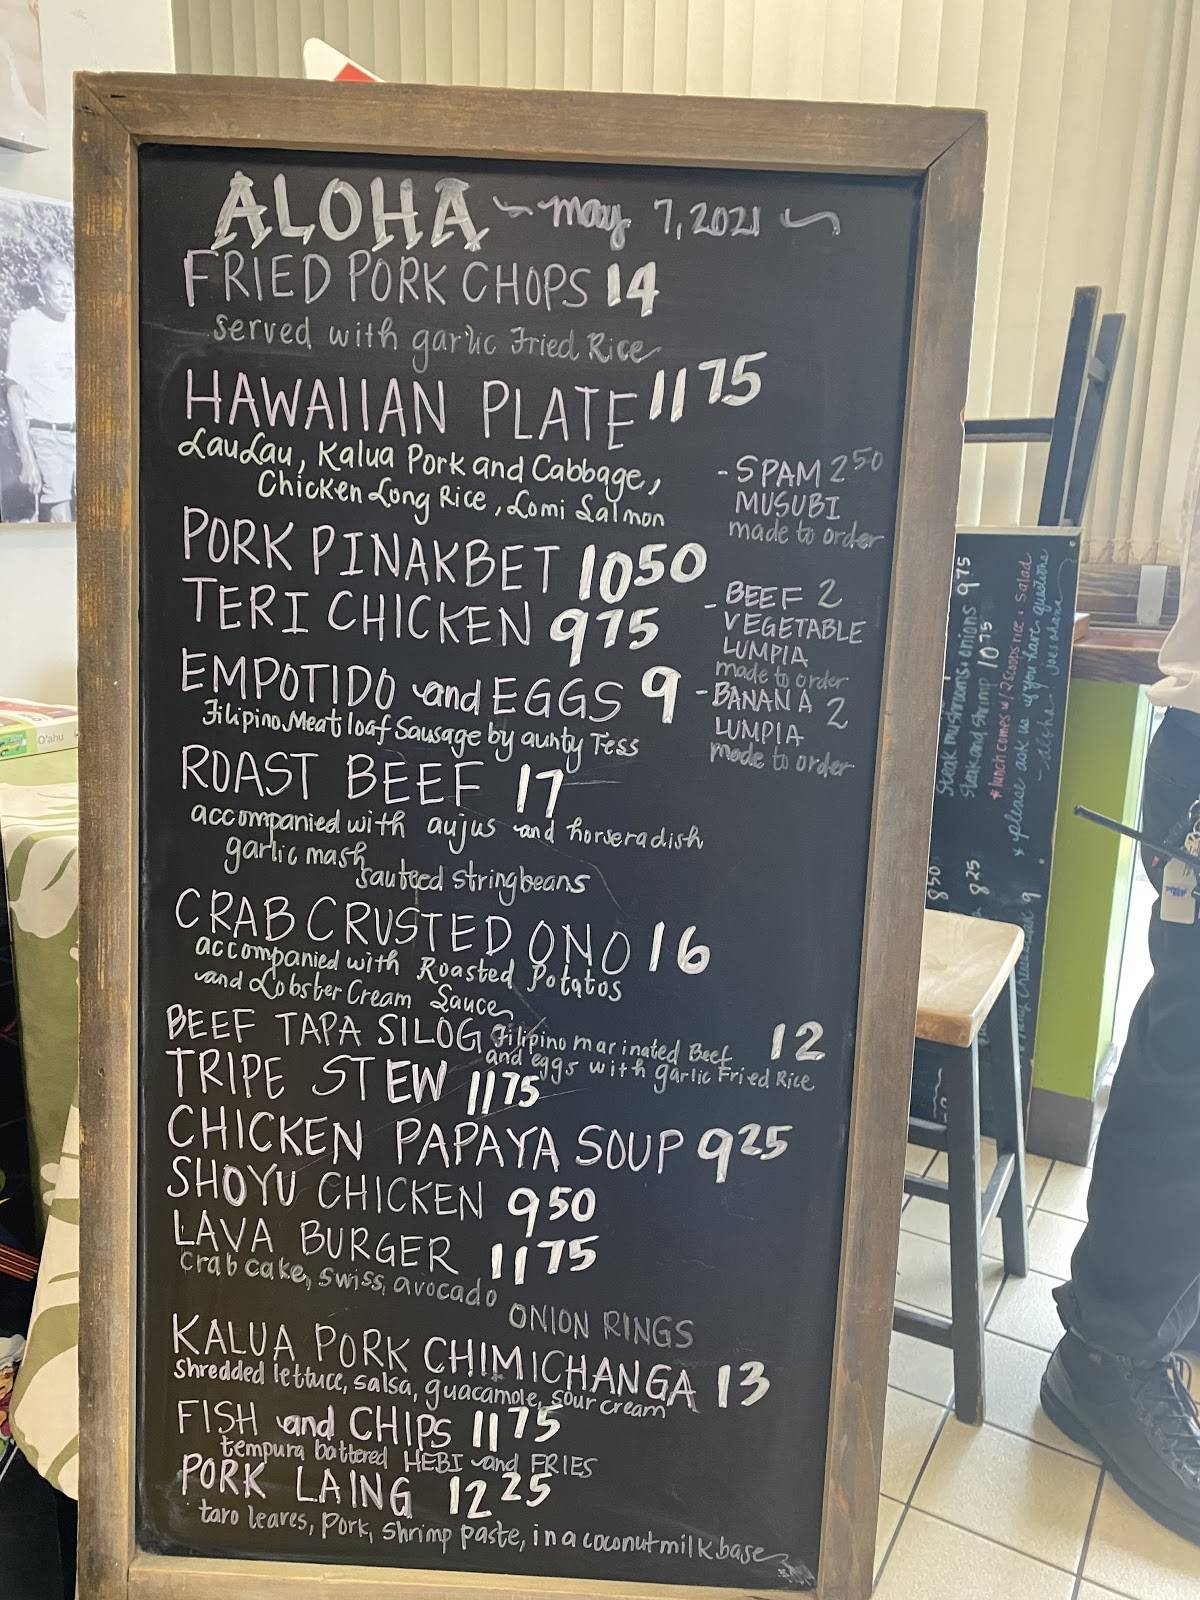 ALOHA ~ may 7, 2021 ~
FRIED PORK CHOPS 14
served with garlic Fried Rice
HAWAIIAN PLATE 11 75
LauLau, Kalua Pork and Cabbage,
Chicken Long Rice, Lomi Salmon
PORK PINAKBET 10 50
TERI CHICKEN 9 75
EMPOTIDO and EGGS 9
Filipino Meat loaf Sausage by aunty Tess
ROAST BEEF 17
accompanied with aujus and horseradish
garlic mash
sauteed stringbeans
CRAB CRUSTED ONO 16
accompanied with Roasted Potatos
and Lobster Cream Sauce
BEEF TAPA SILOG Filipino marinated Beef 12
and eggs with garlic Fried Rice
TRIPE STEW 11 75
CHICKEN PAPAYA SOUP 9 25
SHOYU CHICKEN 9 50
LAVA BURGER 11 75
crab cake, swiss, avocado
ONION RINGS
KALUA PORK CHIMICHANGA 13
shredded lettuce, salsa, guacamole, sour cream
FISH and CHIPS 11 75
tempura battered HEBI and FRIES
PORK LAING 12 25
taro leaves, pork, shrimp paste, in a coconut milk base
- SPAM 2 50
MUSUBI
made to order
- BEEF 2
VEGETABLE
LUMPIA
made to order
- BANANA 2
LUMPIA
made to order
Steak mushrooms onions 9 75
Steak and shrimp 10 75
* lunch comes w/ 2 scoops rice + salad
* please ask us if you have questions
8 50
8 25
9
O'ahu